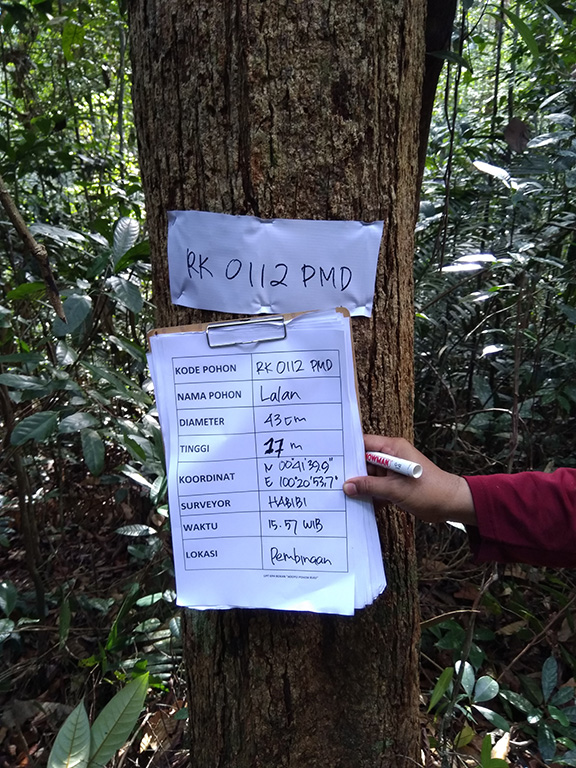 RK 0112 PMD
KODE POHON RK 0112 PMD
NAMA POHON Lalan
DIAMETER 43 cm
TINGGI 17 m
KOORDINAT N 00°41'39,9"
E 100°20'53,7"
SURVEYOR HABIBI
WAKTU 15.57 WIB
LOKASI Pembinaan
SNOWMAN